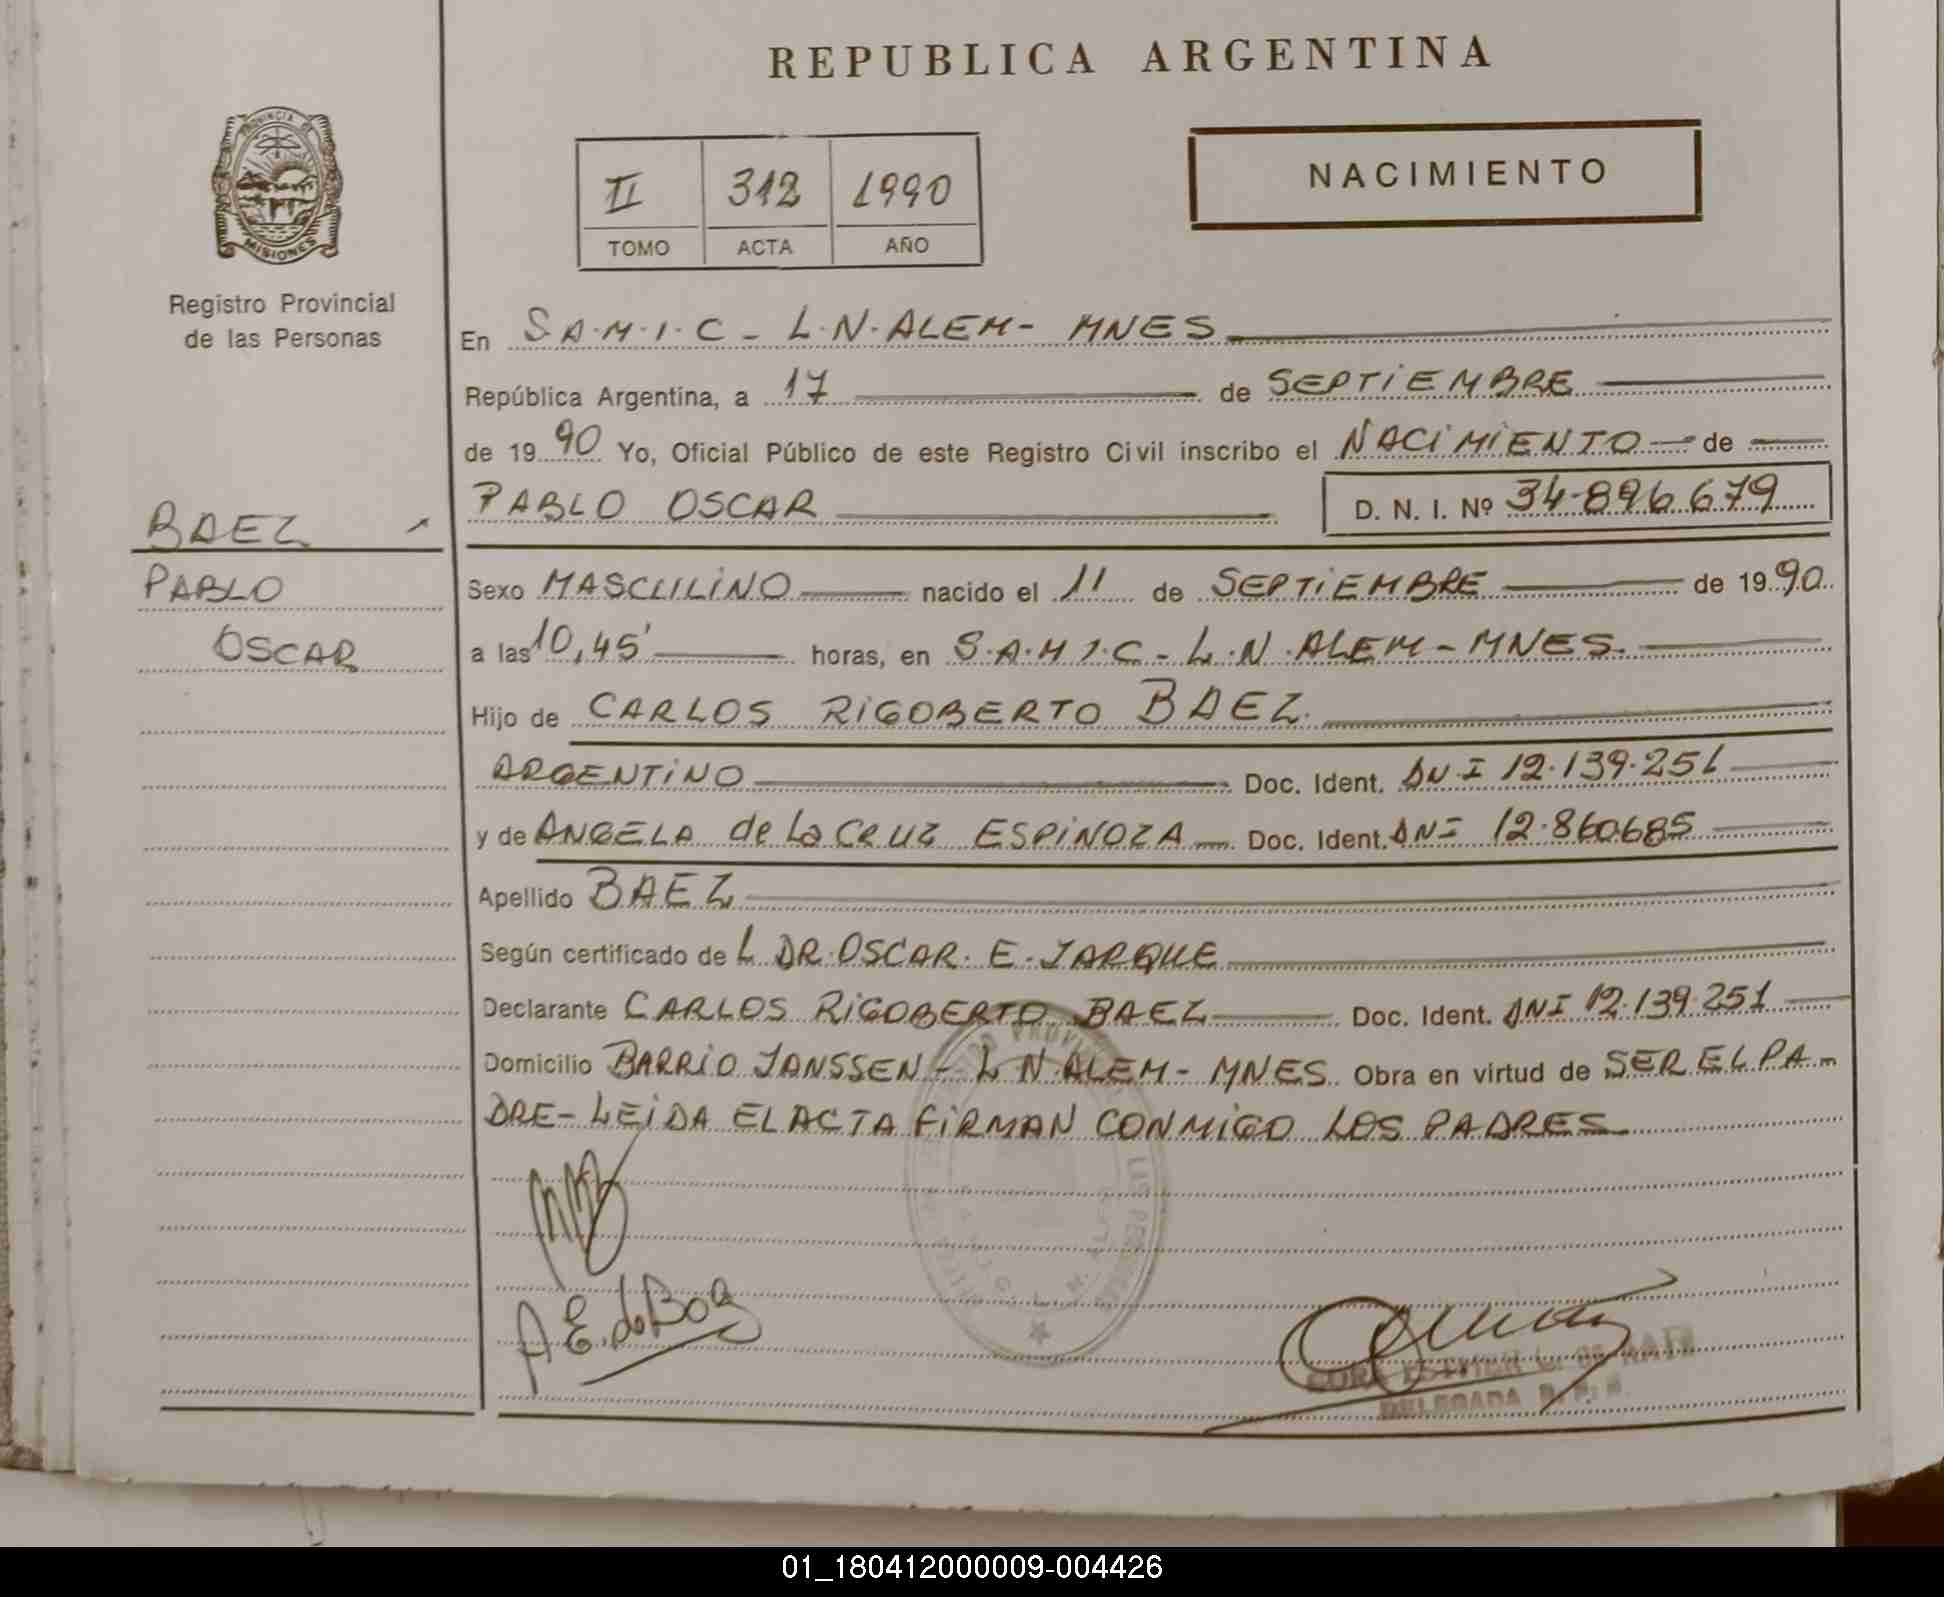 REPUBLICA ARGENTINA
PROVINCIA DE
MISIONES
Registro Provincial
de las Personas
II 312 1990
TOMO ACTA AÑO
NACIMIENTO
En S.A.M.I.C - L.N.ALEM- MNES
República Argentina, a 17 de SEPTiEMBRE
de 1990 Yo, Oficial Público de este Registro Civil inscribo el NACiMiENTO de
PABLO OSCAR D. N. I. Nº 34.896.679
BAEZ
PABLO
OSCAR
Sexo MASCULiNO nacido el 11 de SEPTiEMBRE de 1990
a las 10,45' horas, en S.A.M.I.C - L.N.ALEM-MNES.
Hijo de CARLOS RiGOBERTO BAEZ
ARGENTiNO Doc. Ident. DN.I 12.139.251
y de ANGELA de La CRUZ ESPiNOZA Doc. Ident. DNI 12.860.685
Apellido BAEZ
Según certificado de L DR.OSCAR. E. JARQUE
Declarante CARLOS RiGOBERTO BAEZ Doc. Ident. DNI 12.139.251
Domicilio BARRiO JANSSEN - L N.ALEM- MNES. Obra en virtud de SER EL PA
DRE- LEiDA EL ACTA FiRMAN CONMiGO LOS PADRES
A E. de Baez
DELEGADA R. P. P.
01_180412000009-004426